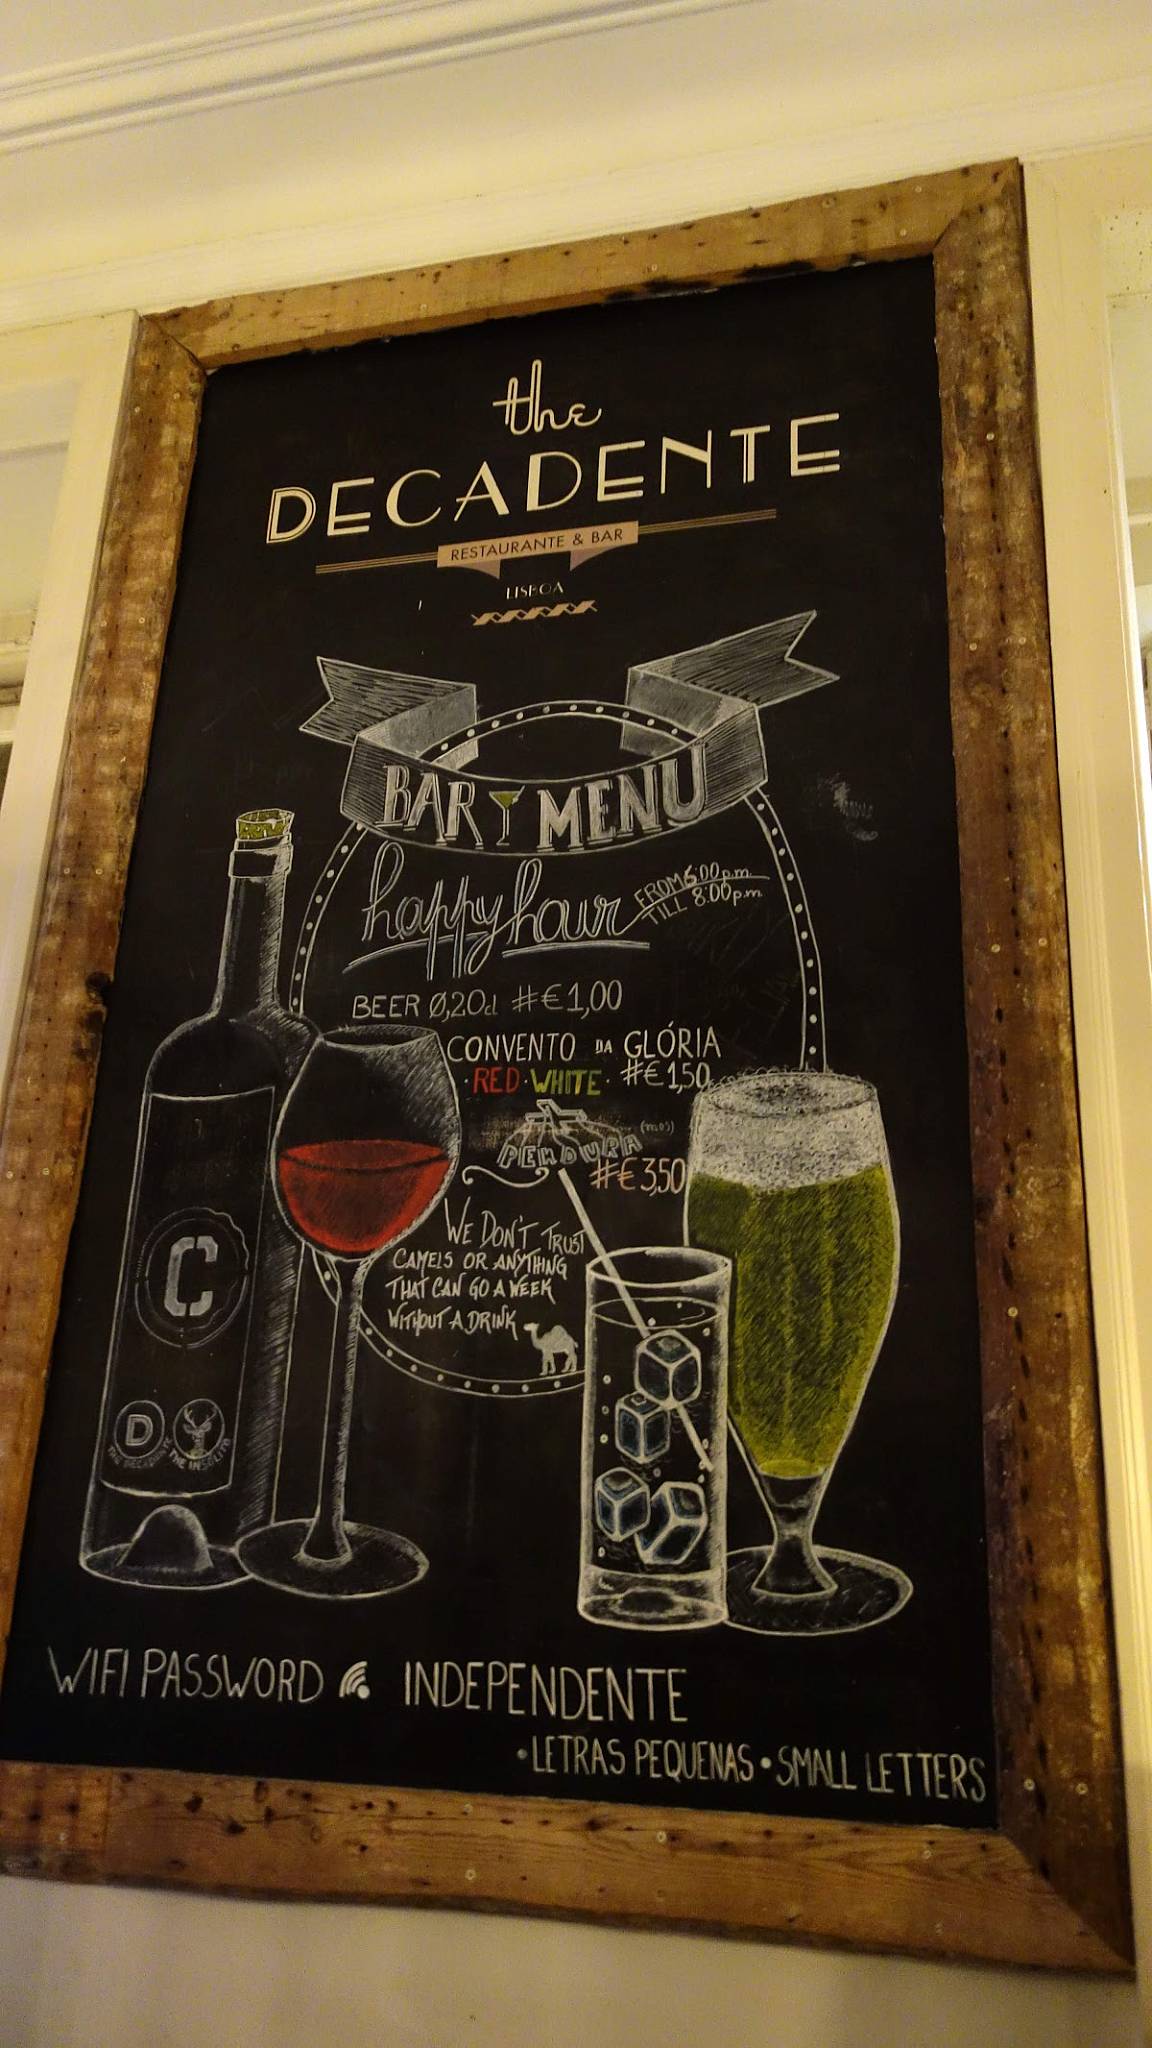 the
DECADENTE
RESTAURANTE & BAR
LISBOA
BAR MENU
happy hour
FROM 6:00 p.m.
TILL 8:00 p.m.
BEER 0,20cl #€1,00
CONVENTO DA GLÓRIA
·RED·WHITE· #€1,50
(mos)
PENDURA
#€3,50
WE DON'T TRUST
CAMELS OR ANYTHING
THAT CAN GO A WEEK
WITHOUT A DRINK
C
D
THE DECADENTE
THE INSÓLITO
WIFI PASSWORD INDEPENDENTE
•LETRAS PEQUENAS•SMALL LETTERS